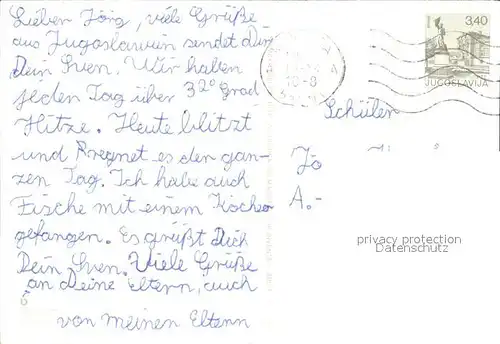 Lieber Jörg, viele Grüße
aus Jugoslawien sendet Dir
Dein Sven. Wir haben
jeden Tag über 32° Grad
Hitze. Heute blitzt
und regnet es den gan-
zen Tag. Ich habe auch
Fische mit einem Kocher
gefangen. Es grüßt Dich
Dein Sven. Viele Grüße
an Deine Eltern, auch
von meinen Eltern
3,40
JUGOSLAVIJA
Schüler
Jö
A.-
privacy protection
Datenschutz